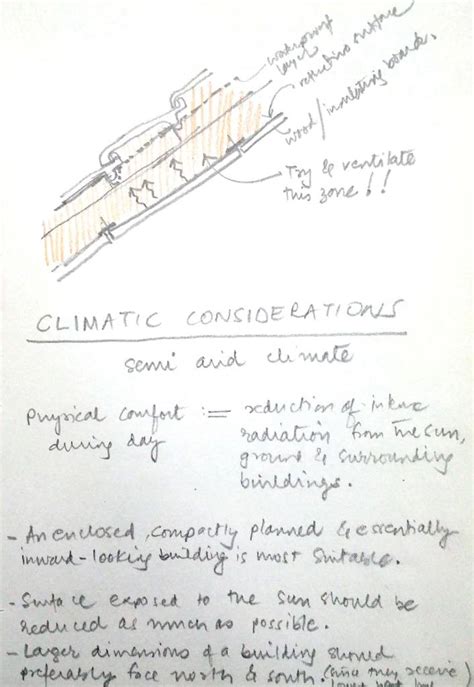 waterproof
layer
reflective surface
wood/insulating boards.
Try & ventilate
this zone!!
CLIMATIC CONSIDERATIONS
semi arid climate
Physical comfort := reduction of intense
during day radiation from the sun,
ground & surrounding
buildings.
- An enclosed, compactly planned & essentially
inward-looking building is most suitable.
- Surface exposed to the sun should be
reduced as much as possible.
- Larger dimensions of a building should
preferably face north & south. (since they receive
lowest heat